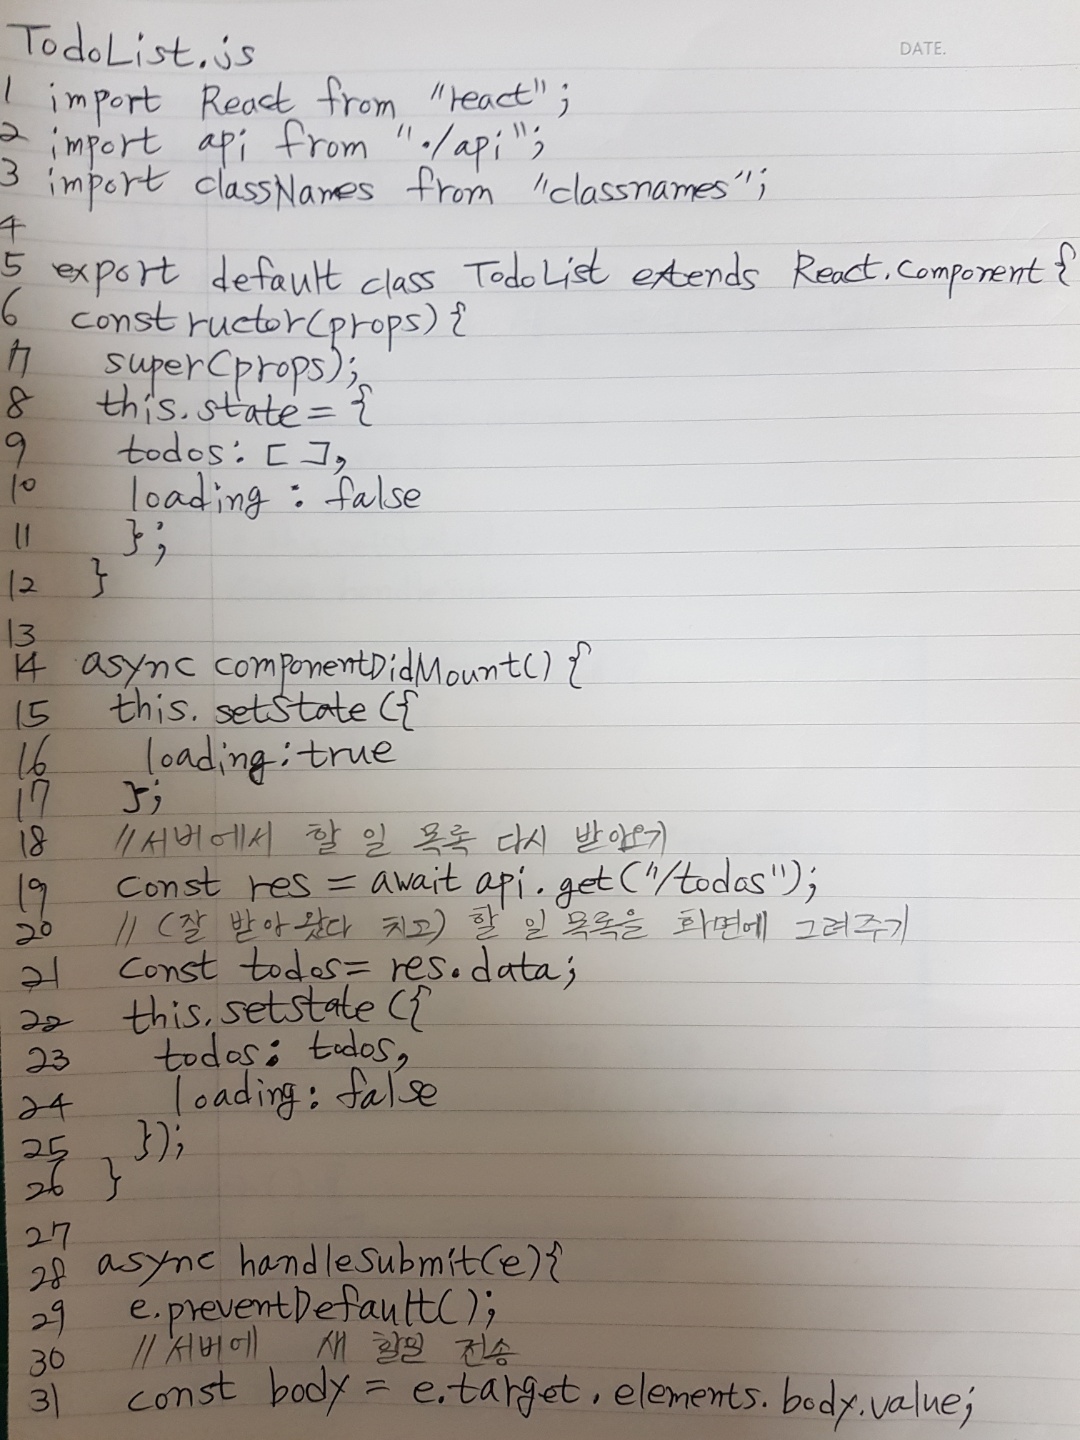 TodoList.js
DATE.
1 import React from "react";
2 import api from "./api";
3 import classNames from "classnames";
4
5 export default class TodoList extends React.Component {
6 constructor(props) {
7 super(props);
8 this.state = {
9 todos: [ ],
10 loading : false
11 };
12 }
13
14 async componentDidMount() {
15 this. setState ({
16 loading: true
17 };
18 //서버에서 할 일 목록 다시 받아오기
19 const res = await api.get("/todos");
20 // (잘 받아왔다 치고) 할 일 목록을 화면에 그려주기
21 const todos = res.data;
22 this.setState ({
23 todos: todos,
24 loading: false
25 });
26 }
27
28 async handleSubmit(e){
29 e.preventDefault();
30 //서버에 새 할일 전송
31 const body = e.target.elements.body.value;